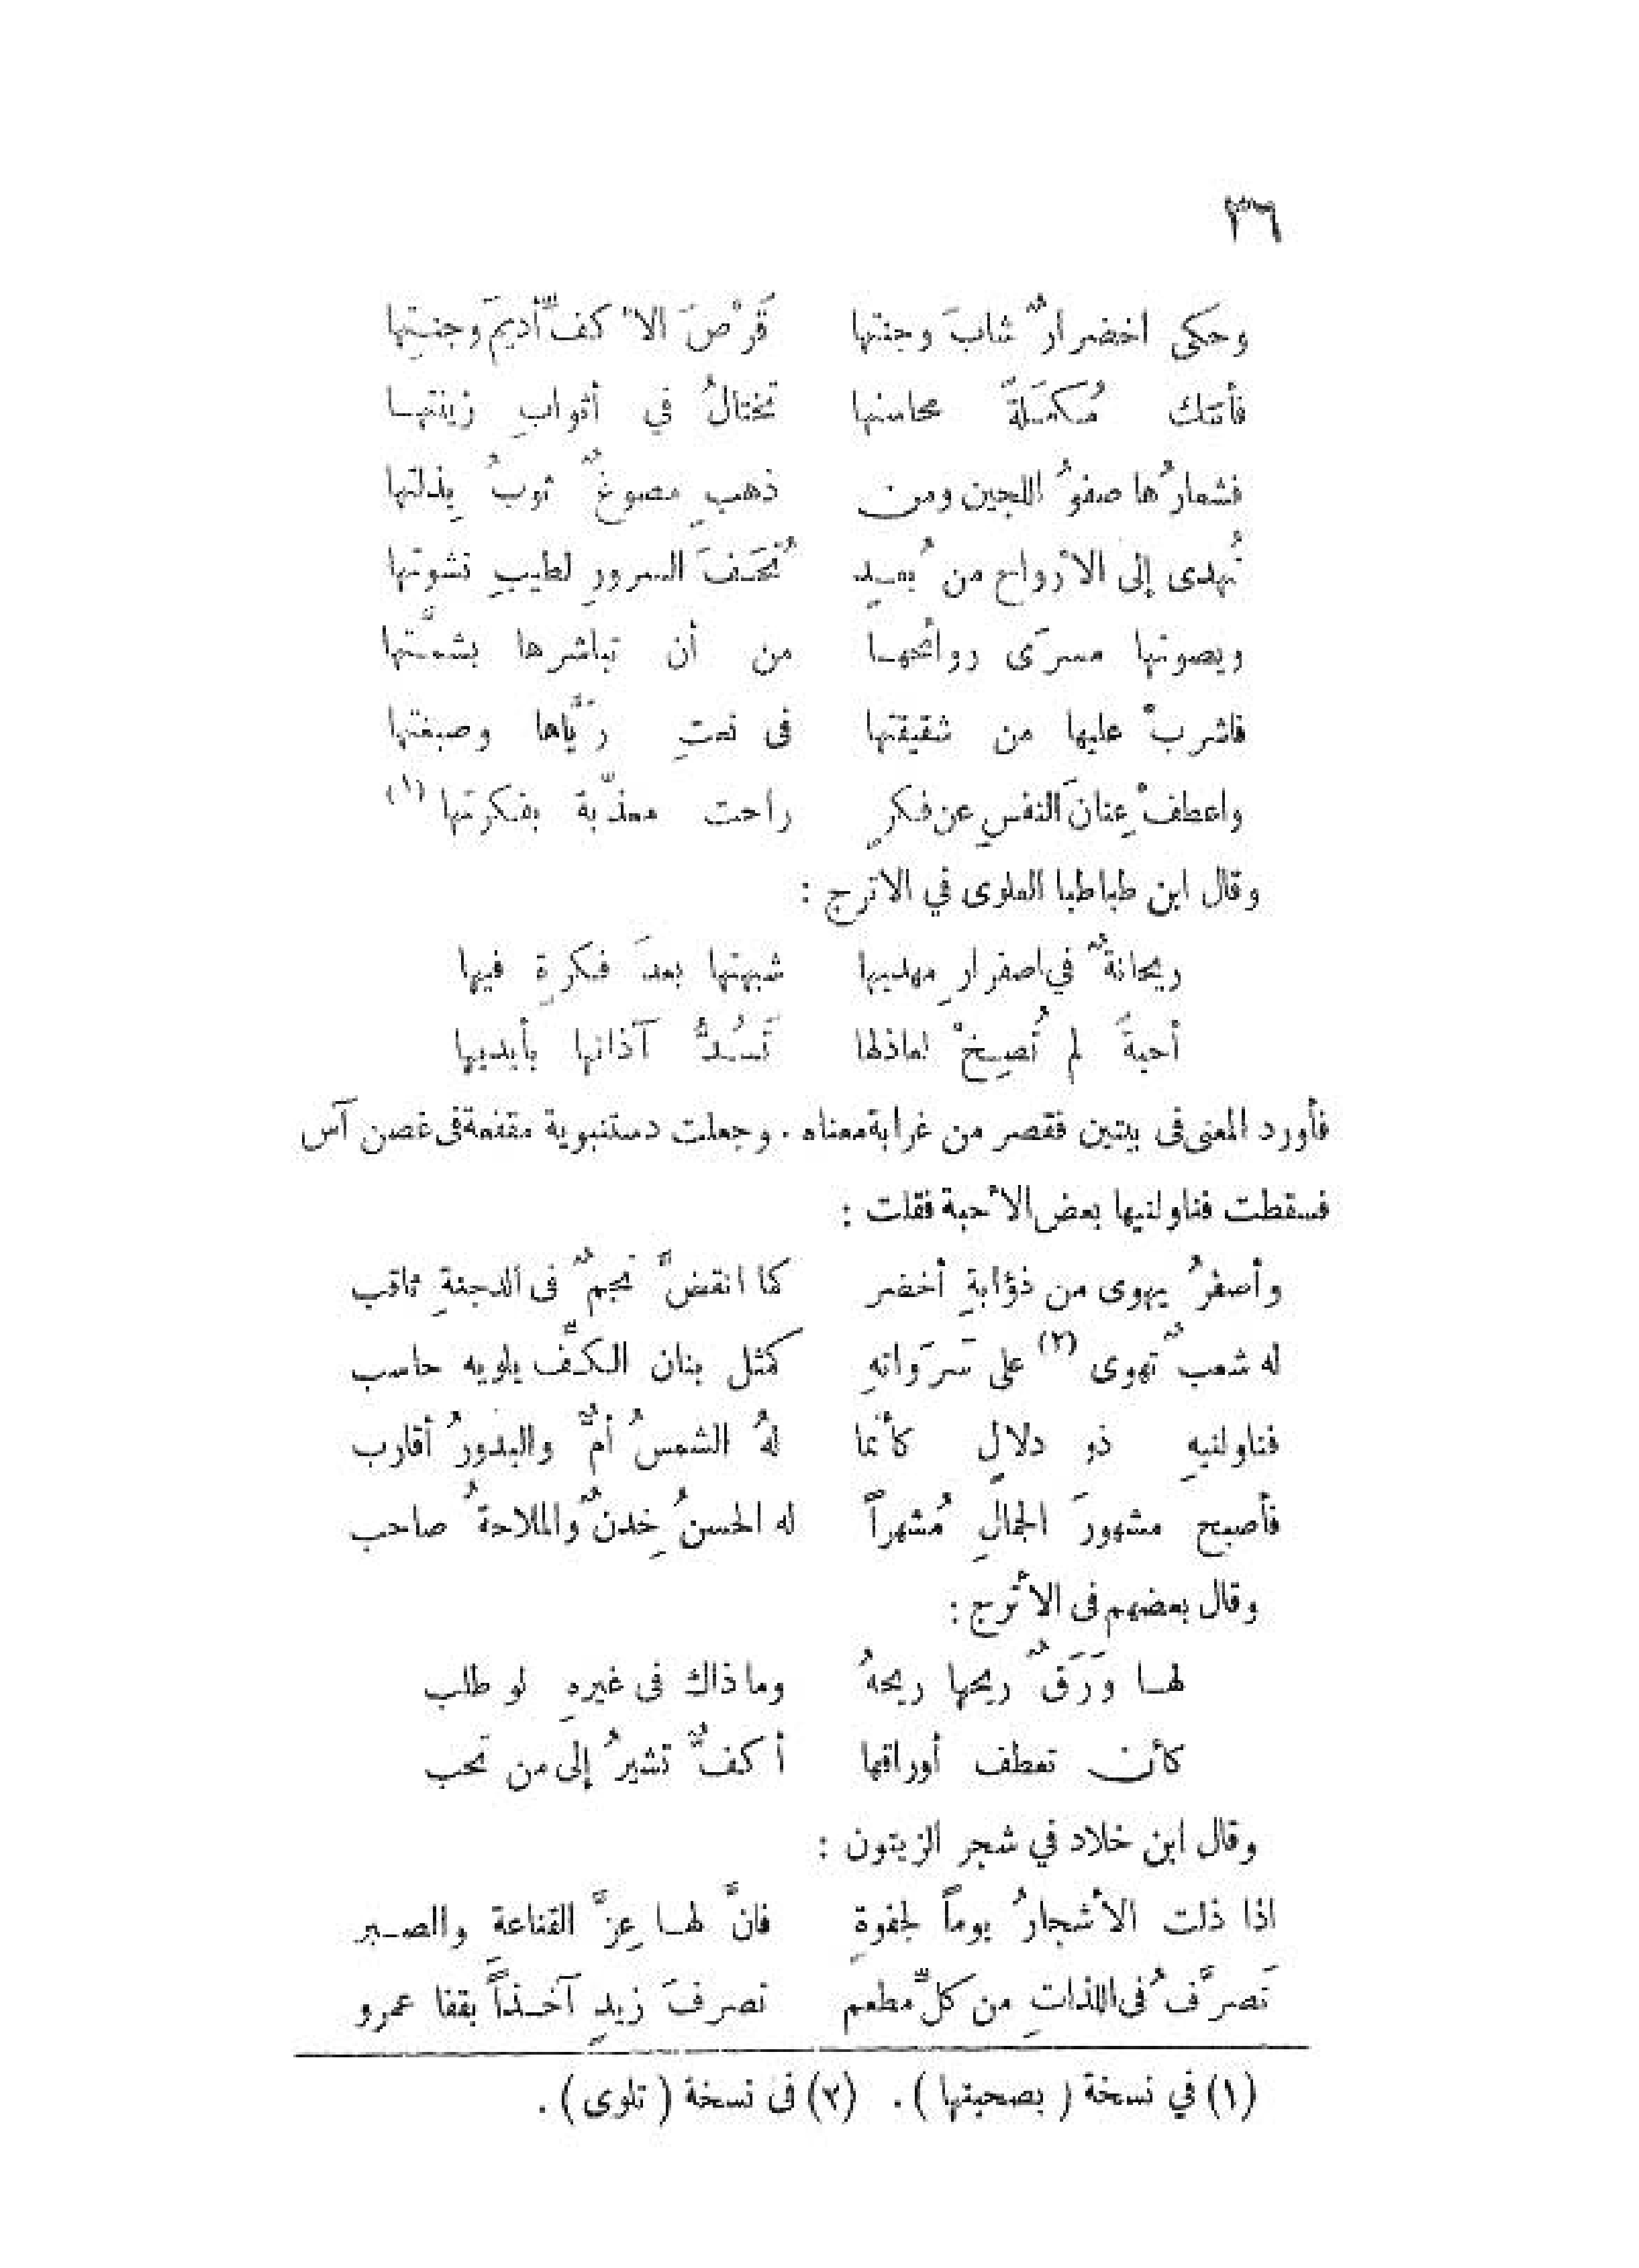 ٣٦
وحكى اخضرارٌ شابَ وجنتها قَرْصَ الأَ كفِّ أديمَ وجنتِها
فأتتك مُكمَلةً محاسنها تختالُ في أثوابِ زينتها
فشعارُها صفوُ اللجين ومن ذهبٍ مصوغٍ ثوبُ بِذلتها
تُهدى إلى الأرواح من بُعدٍ تُحَفَ السرورِ لطيبِ نشوتها
ويصونها مسرَى روائحها من أن تباشرها بشمَّتها
فاشربْ عليها من شقيقتها فى نعتِ رَيَّاها وصبغتها
واعطفْ عِنانَ النفسِ عن فكرٍ راحت معذّبة بفكرتها (١)
وقال ابن طباطبا العلوى في الاترج :
ريحانةٌ في اصفرارِ مهديها شبهتها بعدَ فكرةٍ فيها
أحبةً لم تُصِخْ لعاذلها تَسُدُّ آذانها بأيديها
فأورد المعنى فى بيتين فقصر من غرابة معناه . وجعلت دستنبوية مقفعة فى غصن آس
فسقطت فناولنيها بعض الأحبة فقلت :
وأصفرُ يهوى من ذؤابةِ أخضر كما انقضَّ نجمٌ فى الدجنةِ ثاقب
له شعبٌ تهوى (٢) على سَرَواتهِ كمثل بنان الكفِّ يلويه حاسب
فناولنيهِ ذو دلالٍ كأنما لهُ الشمسُ أمٌّ والبدورُ أقارب
فأصبح مشهورَ الجمالِ مُشهراً له الحسنُ خِدنٌ والملاحةُ صاحب
وقال بعضهم فى الأترج :
لها وَرَقٌ ريحها ريحهُ وما ذاك فى غيرهِ لو طلب
كأن تعطف أوراقها أكفٌّ تشيرُ إلى من تحب
وقال ابن خلاد في شجر الزيتون :
اذا ذلت الأشجارُ يوماً لجفوةٍ فانَّ لها عِزَّ القناعةِ والصبر
تَصرَّفُ فى اللذاتِ من كلِّ مطعم تصرفَ زيدٍ آخذاً بقفا عمرو
(١) في نسخة ( بصحبتها ) . (٢) فى نسخة ( تلوى ) .